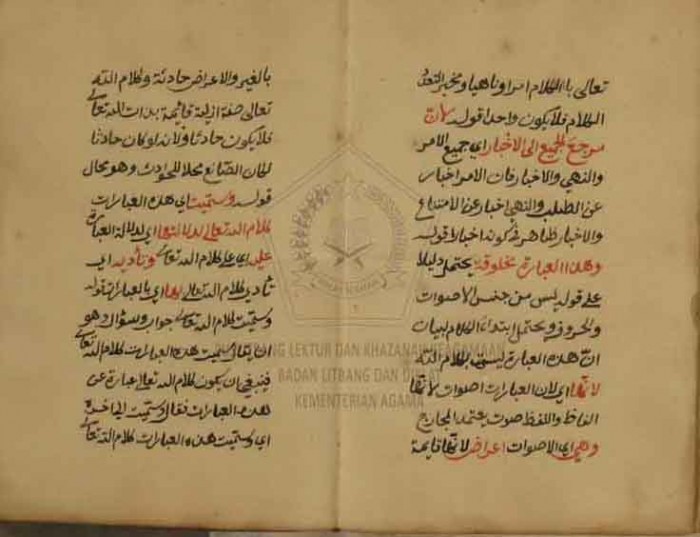 تعالى بالكلام امرا وناهيا ومخبرا لتعدد
الكلام فلا يكون واحدا قوله لان
مرجع الجميع الى الاخبار اي جميع الامر
والنهي والاخبار فان الامر اخبار
عن الطلب والنهي اخبار عن الامتناع
والاخبار ظاهرة كونه اخبارا قوله
وهذه العبارة مخلوقة يحتمل دليلا
على قوله ليس من جنس الاصوات
والحروف ويحتمل ابتداء الكلام لبيان
ان هذه العبارة ليست بكلام الله
لانها اي لان العبارات اصوات لانها
الفاظ واللفظ صوت يعتمد المخارج
وهي اي الاصوات اعراض لانها قايمة
بالغير والاعراض حادثة وكلام الله
تعالى صفة ازلية قائمة بذات الله تعالى
فلا يكون حادثا ولانه لو كان حادثا
لكان الصانع محلا للحوادث وهو محال
قوله وسميت اي هذه العبارات
كلام الله تعالى لدلالتها اي لدلالة العبارة
عليه اي على كلام الله تعالى وتأديه اي
تأدي كلام الله تعالى بها اي بالعبارات قوله
وسميت كلام الله تعالى جواب وسؤال وهو
ان يقال سميت هذه العبارات كلام الله تعالى
فينبغي ان يكون كلام الله تعالى عبارة عن
هذه العبارات فقال وسميت الى اخره
اي وسميت هذه العبارات كلام الله تعالى
PUSLITBANG LEKTUR DAN KHAZANAH KEAGAMAAN
BADAN LITBANG DAN DIKLAT
KEMENTERIAN AGAMA